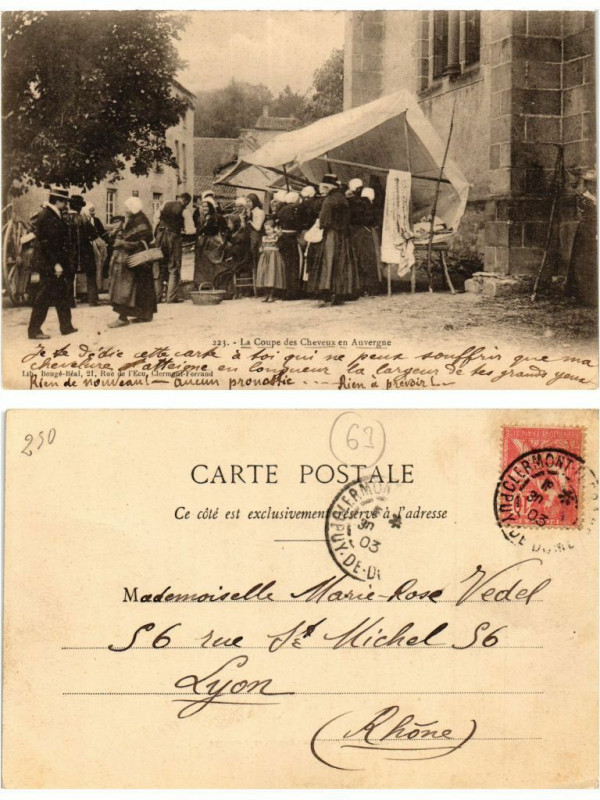 223. - La Coupe des Cheveux en Auvergne
Je te dédie cette carte à toi qui ne peux souffrir que ma
chevelure n'atteigne en longueur la largeur de tes grands yeux
Lib. Bougé-Béal, 21, Rue de l'Ecu, Clermont-Ferrand
Rien de nouveau! — aucun pronostic ... — Rien à prévoir! —
250
63
CARTE POSTALE
Ce côté est exclusivement réservé à l'adresse
CLERMONT
03
PUY-DE-D
CLERMONT
03
PUY-DE-DOME
Mademoiselle Marie-Rose Vedel
56 rue St Michel 56
Lyon
(Rhône)